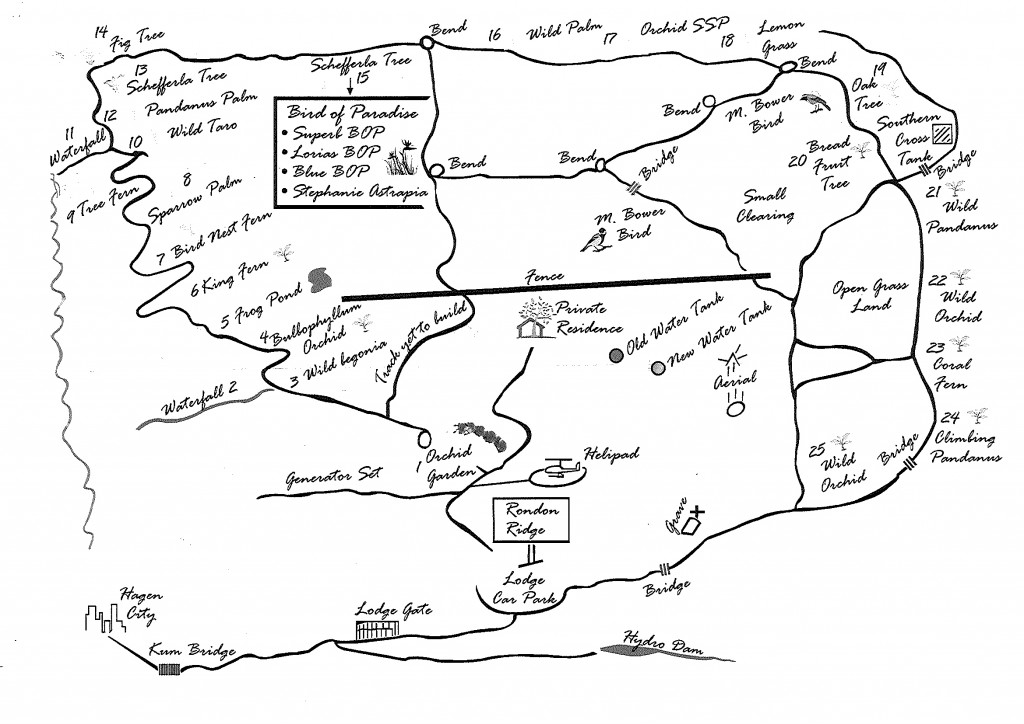 14
Fig Tree
Bend
16
Wild Palm
17
Orchid SSP
18
Lemon
Grass
Bend
19
Oak
Tree
13
Schefferla Tree
Schefferla Tree
15
12
Pandanus Palm
Wild Taro
11
Waterfall
10
Bird of Paradise
• Superb BOP
• Lorias BOP
• Blue BOP
• Stephanie Astrapia
Bend
Bend
Bend
M. Bower
Bird
Southern
Cross
Tank
Bridge
Bread
Fruit
Tree
20
Bridge
9 Tree Fern
8
Sparrow Palm
7 Bird Nest Fern
6 King Fern
5 Frog Pond
4 Bullophyllum
Orchid
3 Wild begonia
Waterfall 2
M. Bower
Bird
Small
Clearing
21
Wild
Pandanus
Fence
Track yet to build
Private
Residence
Old Water Tank
New Water Tank
Aerial
Open Grass
Land
22
Wild
Orchid
23
Coral
Fern
24
Climbing
Pandanus
25
Wild
Orchid
Bridge
1 Orchid
Garden
Generator Set
Helipad
Rondon
Ridge
Grave
Lodge
Car Park
Bridge
Hagen
City
Lodge Gate
Kum Bridge
Hydro Dam